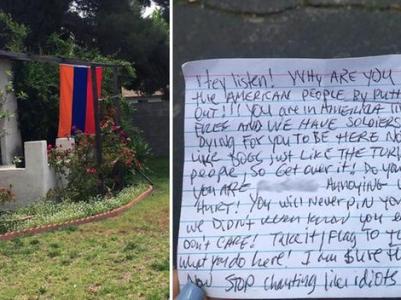 Hey listen! WHY ARE YOU
the AMERICAN PEOPLE BY PUTT
OUT!!! YOU are in AMERICA
FREE AND WE HAVE SOLDIERS
DYING FOR YOU TO BE HERE NO
LIKE DOGS JUST LIKE THE TUR
people, So Get over it! Do yo
you ARE ANNOYING
HURT! YOU will Never PIN YO
we Didn't even know you e
DON'T CARE! TAKE it/FLAG TO T
what you do here! I am sure
Now STOP chanting like idiots